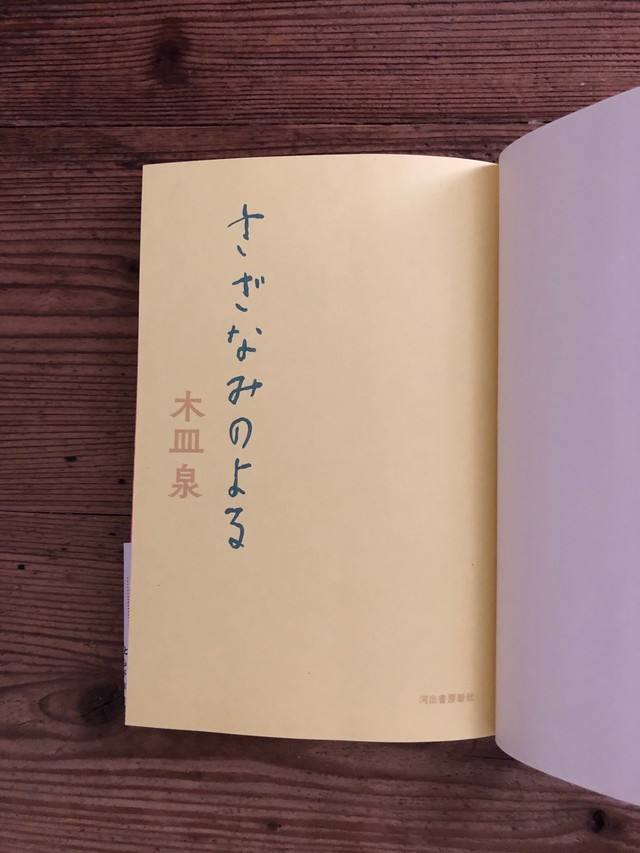 さざなみのよる
木皿泉
河出書房新社